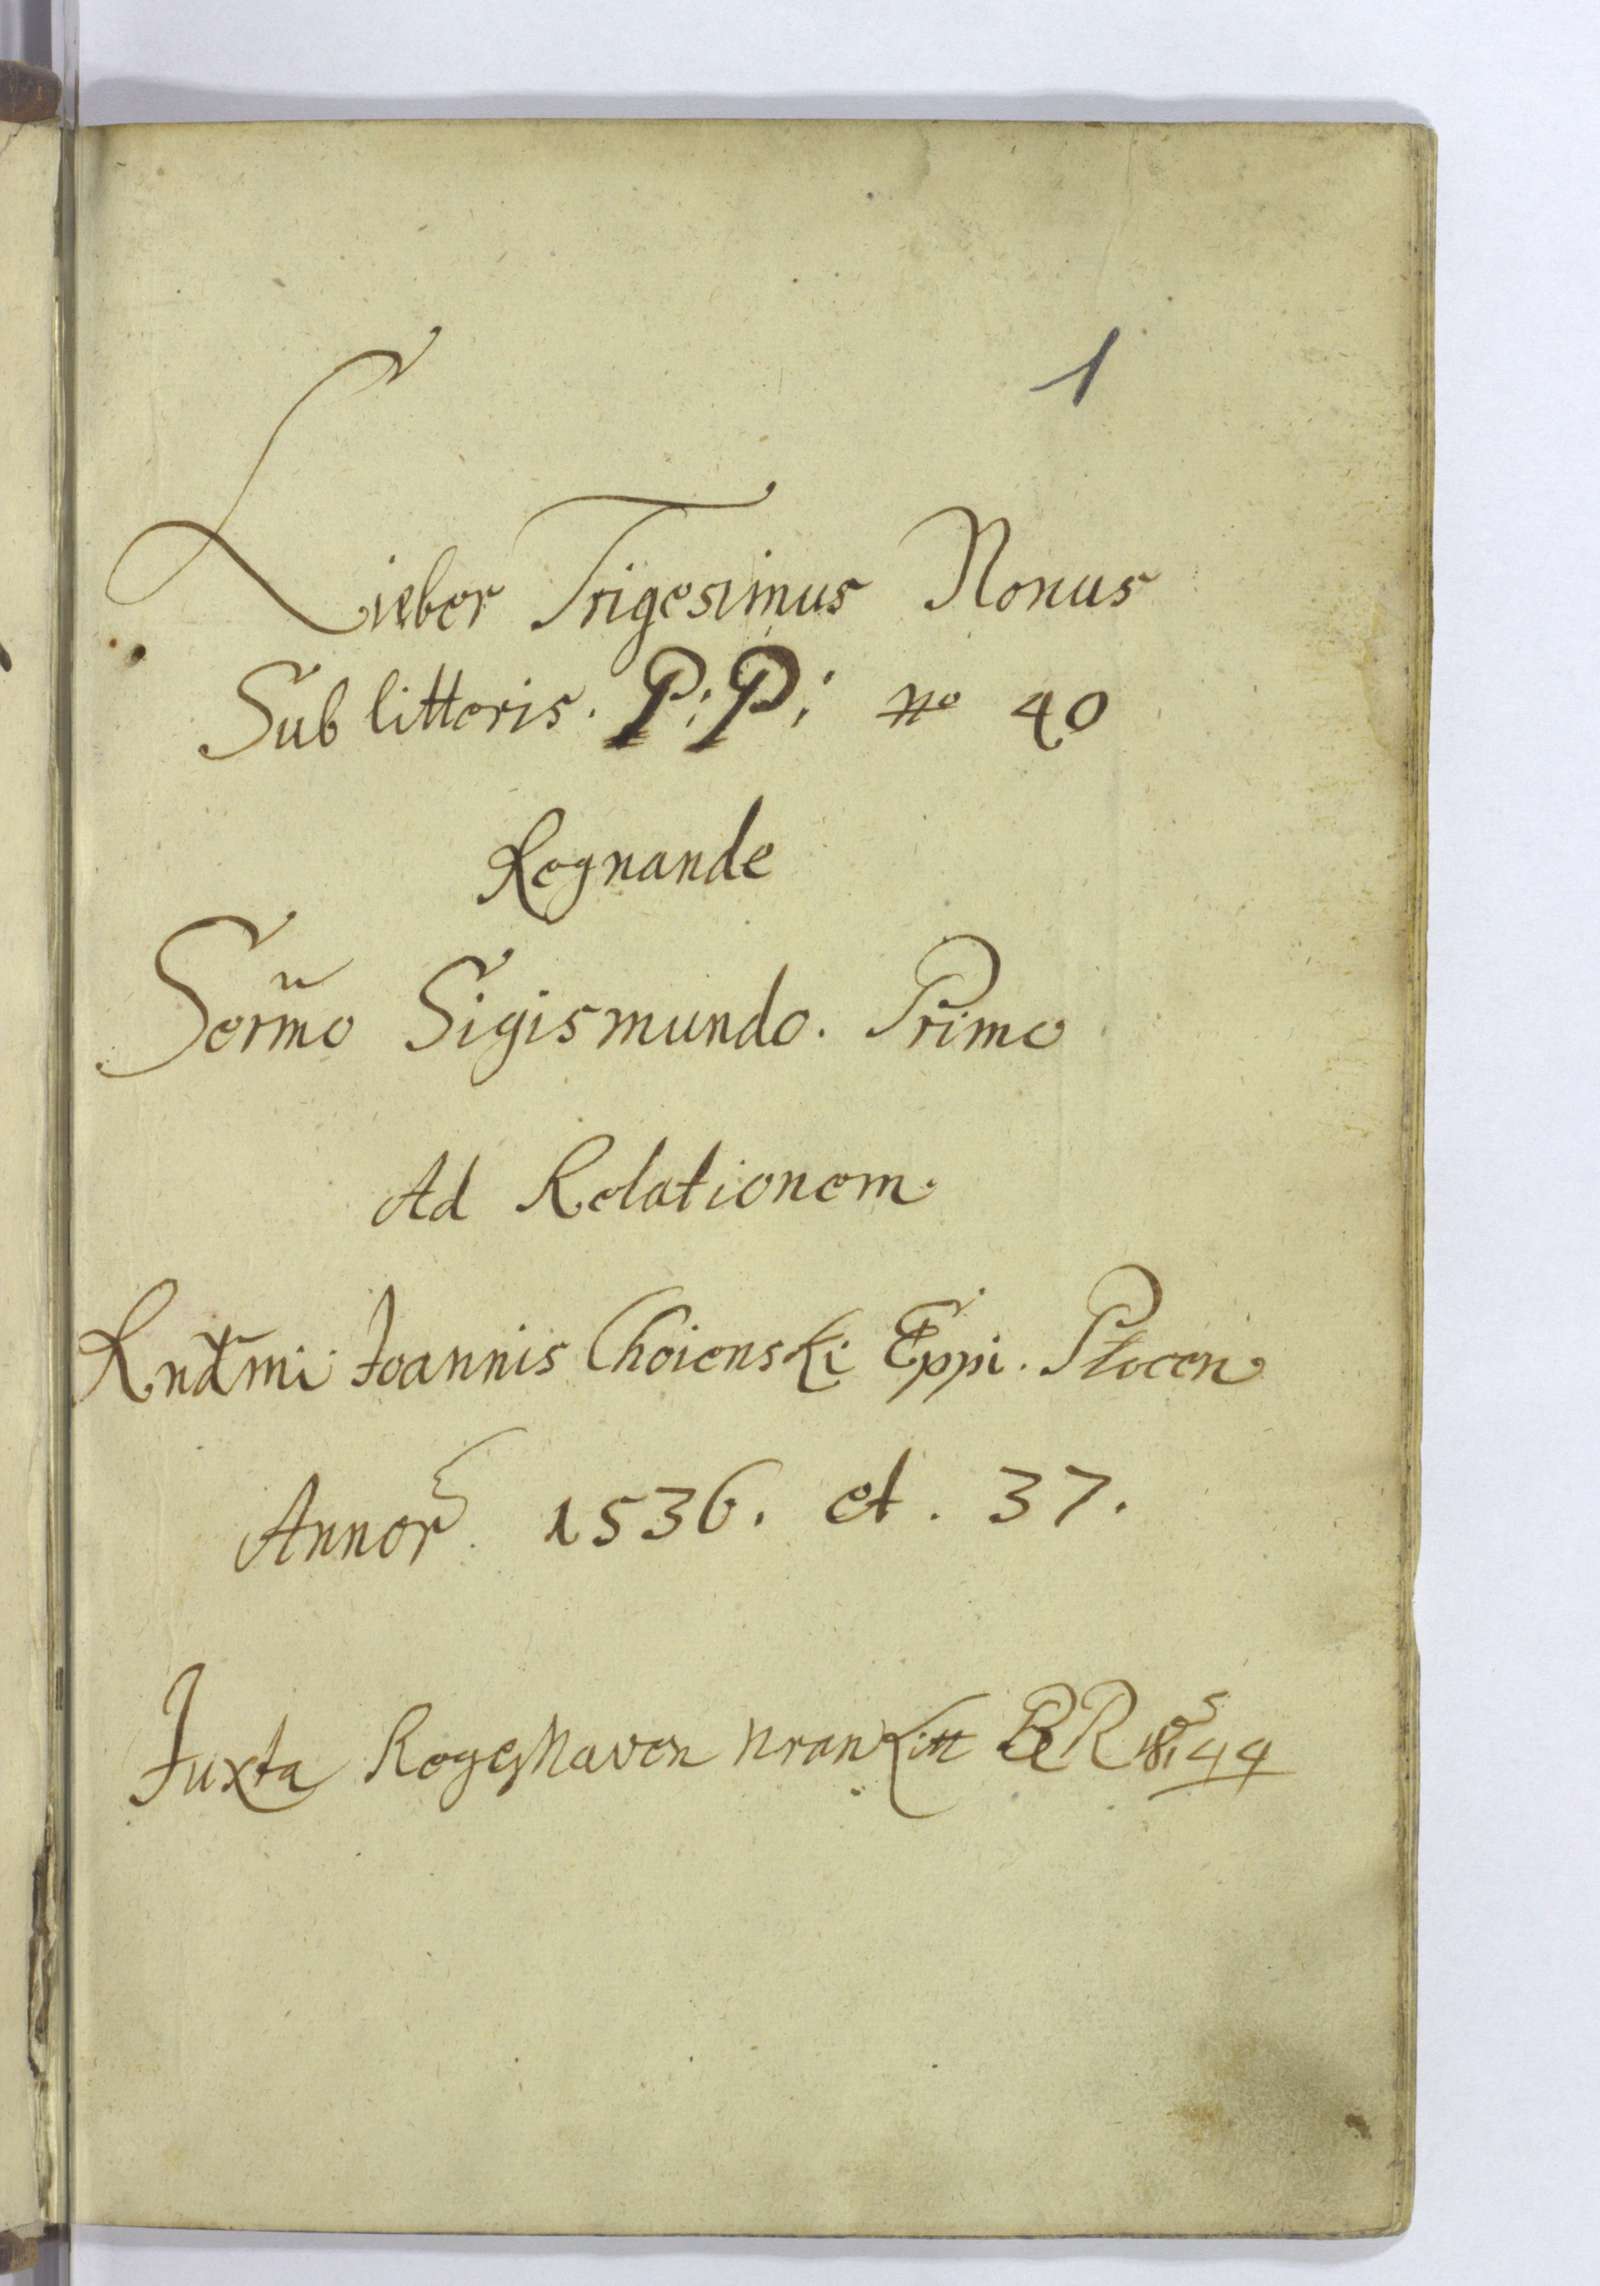 1
Lieber Trigesimus Nonus
Sub litteris. P: P: no 40
Regnande
Serm̃o Sigismundo. Primo
Ad Relationem.
Rndmi Joannis Choienski Eppi. Płocen
Annor 1536. et. 37.
Juxta 44